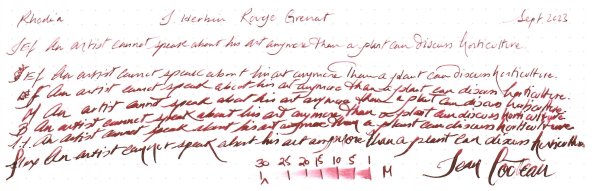 Rhodia J Herbin Rouge Grenat Sept 2023
EF An artist cannot speak about his art anymore than a plant can discuss horticulture.
EF An artist cannot speak about his art anymore than a plant can discuss horticulture.
F An artist cannot speak about his art anymore than a plant can discuss horticulture.
M An artist cannot speak about his art anymore than a plant can discuss horticulture
B An artist cannot speak about his art anymore than a plant can discuss horticulture
1.1 An artist cannot speak about his art anymore than a plant can discuss horticulture
An artist cannot speak about his art anymore than a plant can discuss horticulture
30 25 20 15 10 5 1
M
Jean Cocteau